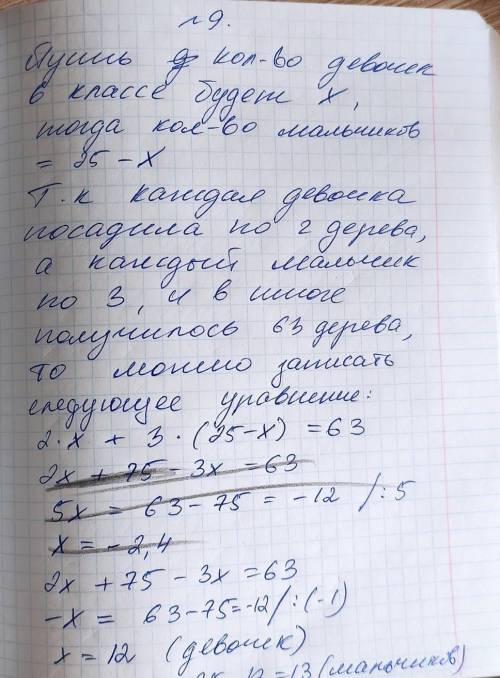 №9.
Пусть кол-во девочек
в классе будет x,
тогда кол-во мальчиков
= 25 - x
Т.к каждая девочка
посадила по 2 дерева,
а каждый мальчик
по 3, и в итоге
получилось 63 дерева,
то можно записать
следующее уравнение:
2·x + 3·(25-x) = 63
2x + 75 - 3x = 63
5x = 63-75 = -12 /:5
x = -2,4
2x + 75 - 3x = 63
-x = 63-75=-12/:(-1)
x = 12 (девочек)
25-12=13(мальчиков)